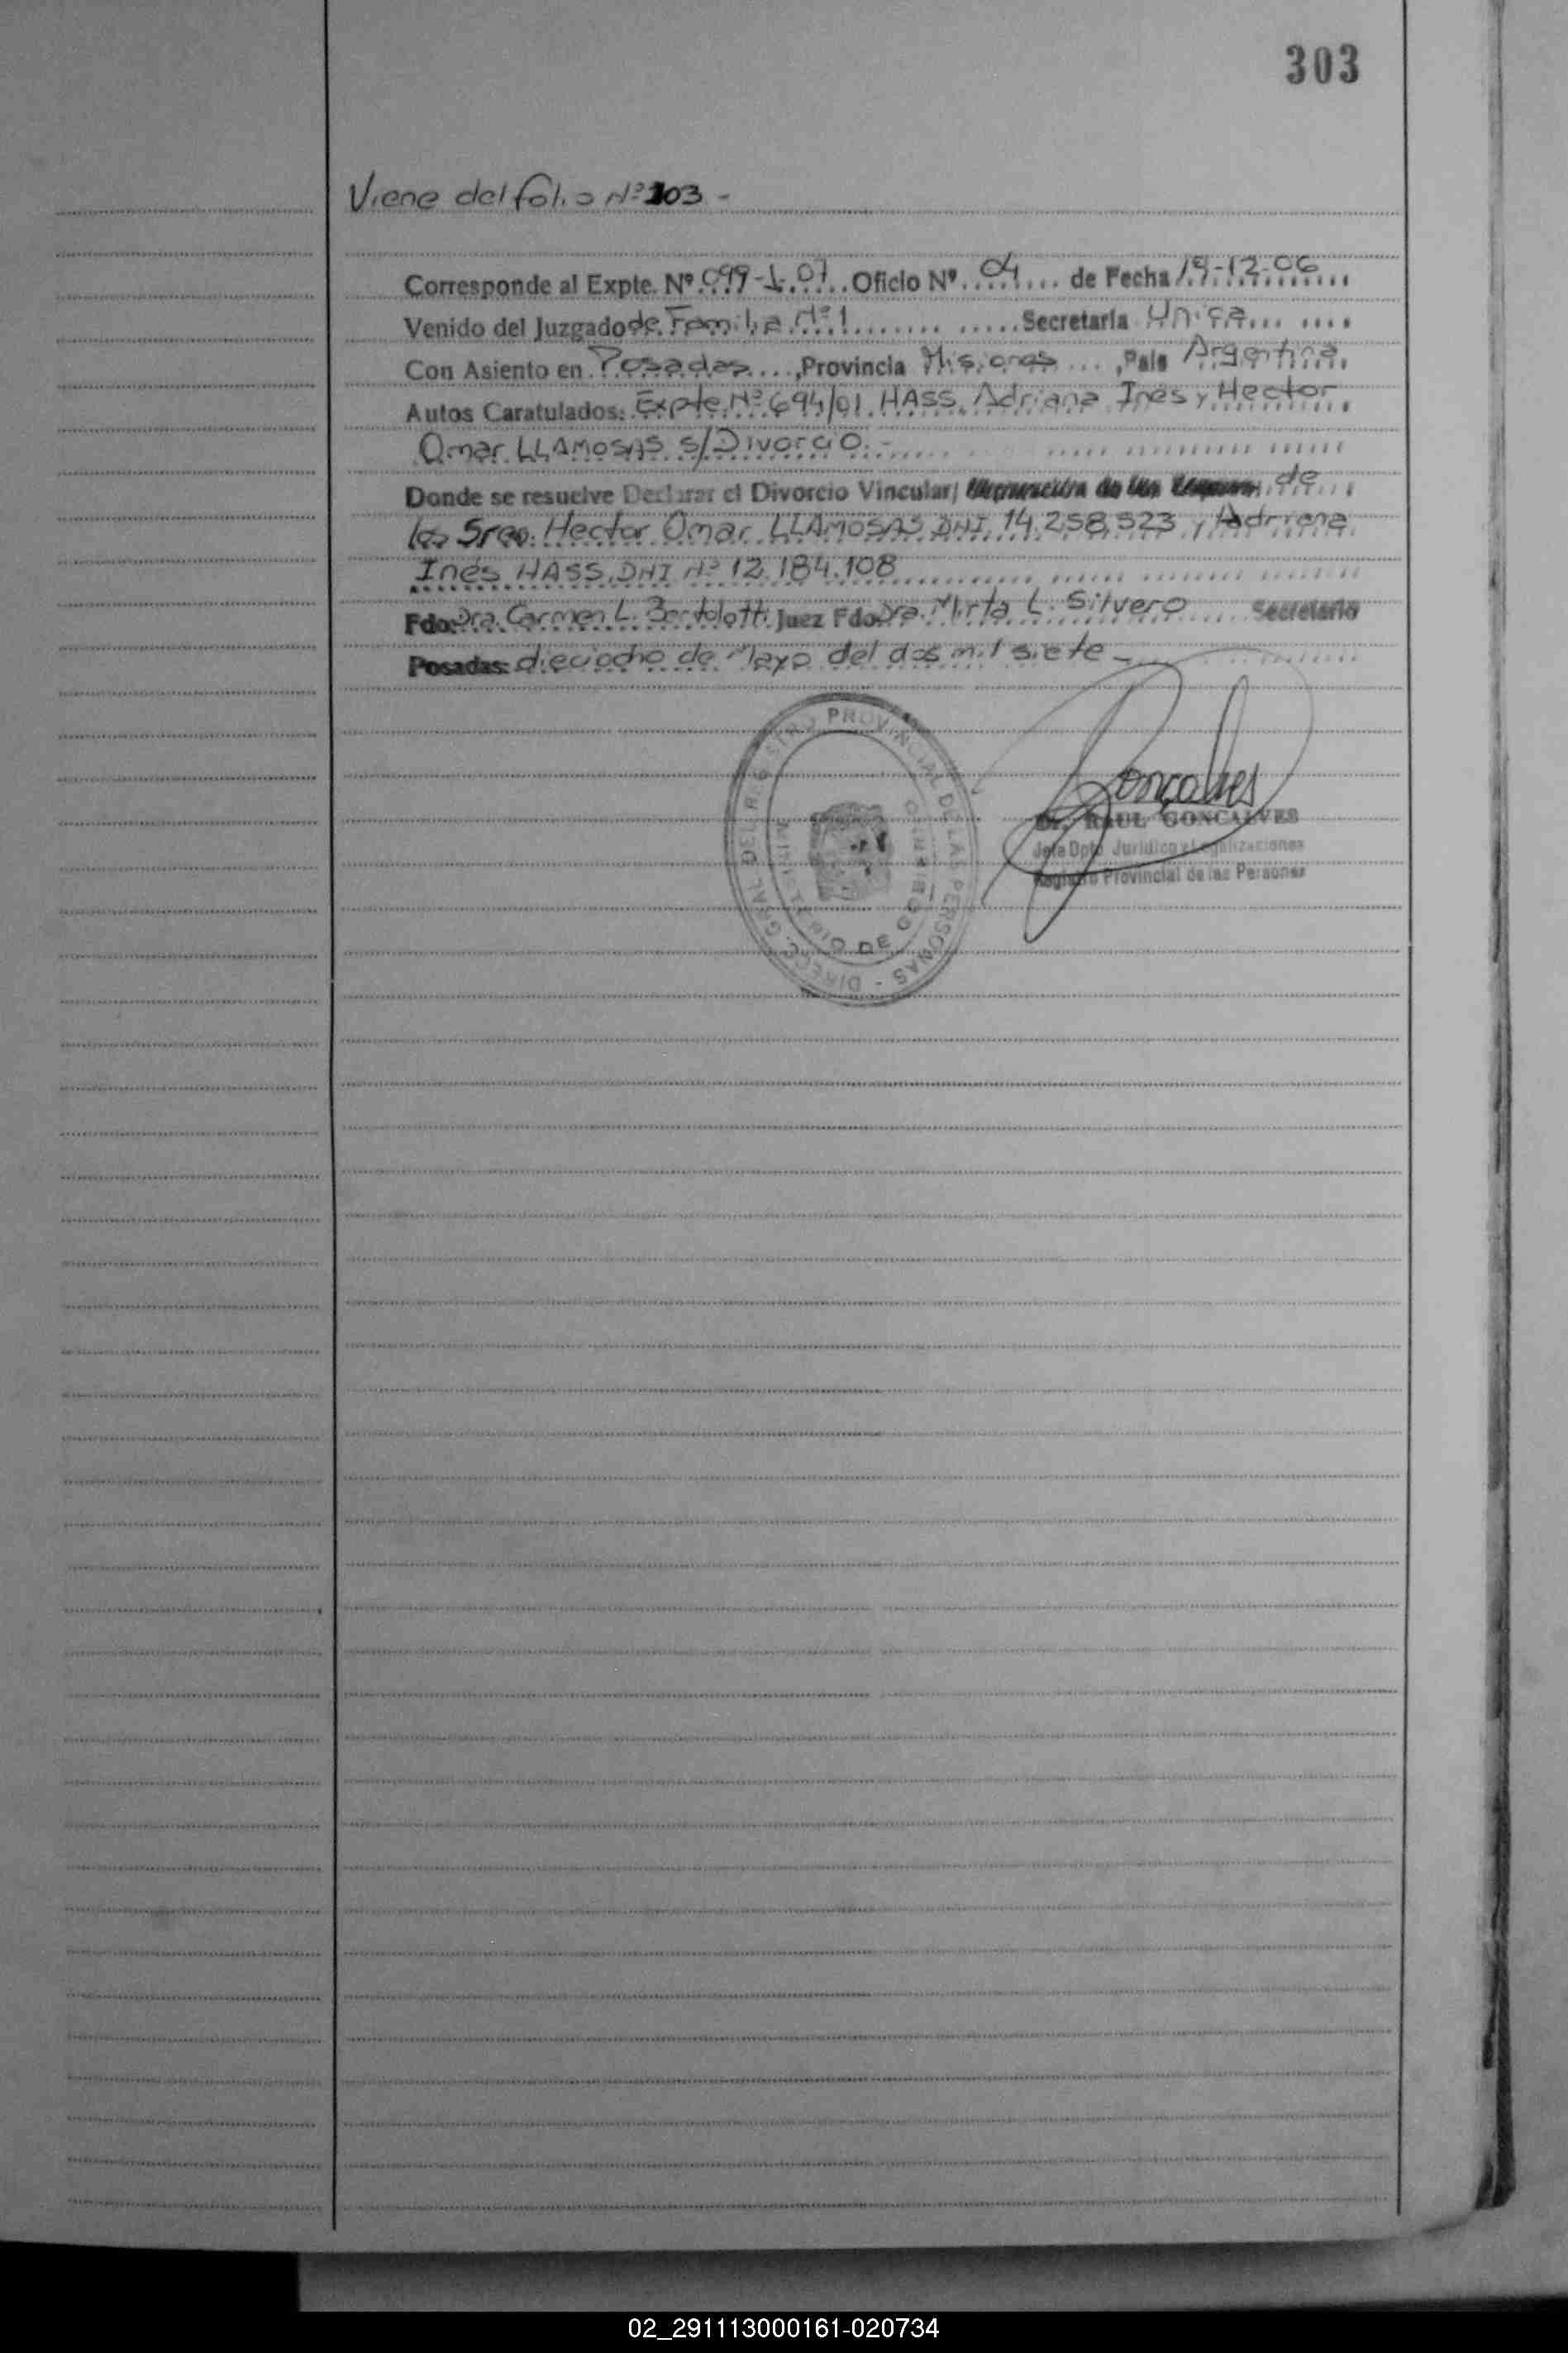 303
Viene del folio Nº 103 -
Corresponde al Expte. Nº 099-L-07 Oficio Nº 04 de Fecha 19-12-06
Venido del Juzgado de Familia Nº 1 Secretaría Única
Con Asiento en Posadas, Provincia Misiones, País Argentina
Autos Caratulados: Expte. Nº 694/01 HASS Adriana Inés y Hector
Omar LLAMOSAS s/Divorcio.-
Donde se resuelve Declarar el Divorcio Vincular/ de
los Sres. Hector Omar LLAMOSAS DNI 14.258.523 y Adriana
Inés HASS DNI Nº 12.184.108
Fdo: Dra. Carmen L. Bortolotti Juez Fdo: Dra. Mirta L. Silvero Secretario
Posadas: dieciocho de Mayo del dos mil siete -
Goncalves
Dr. RAUL GONCALVES
Jefe Dpto. Jurídico y Legalizaciones
Registro Provincial de las Personas
DIRECC. GRAL. DEL REGISTRO PROVINCIAL DE LAS PERSONAS -
MINISTERIO DE GOBIERNO
02_291113000161-020734